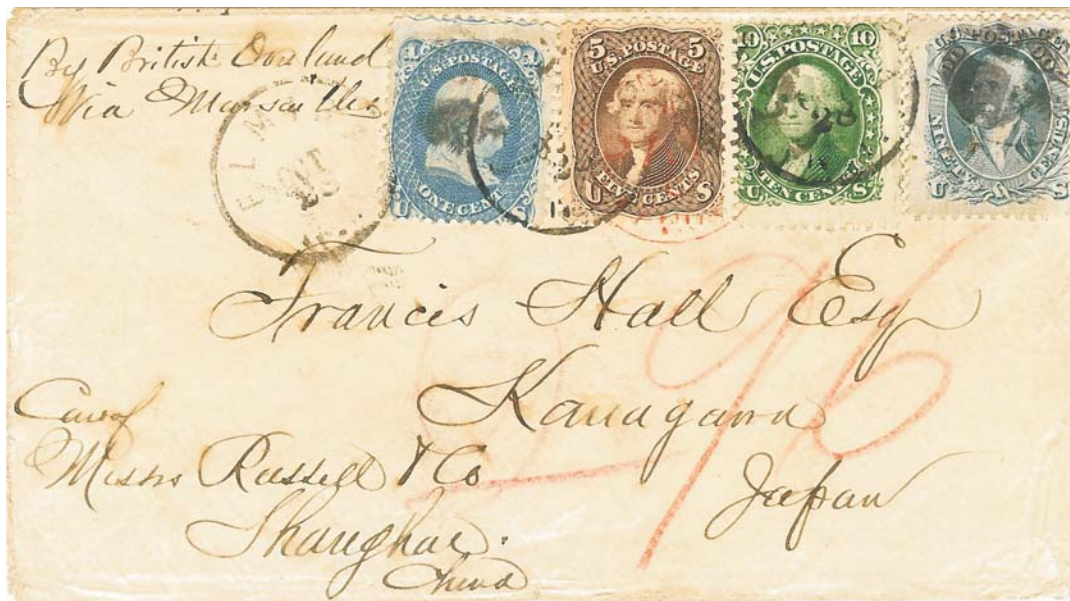 By British Overland
Via Marseilles
1 U.S. POSTAGE 1
ONE CENT
U S
5 5
U.S. POSTAGE
FIVE CENTS
U S
10 10
U.S. POSTAGE
TEN CENTS
U S
90 90
U.S. POSTAGE
NINETY CENTS
U S
ELM
NOV
28
Francis Hall Esq
Kanagawa
Japan
Care of
Messrs Russell & Co
Shanghai.
China